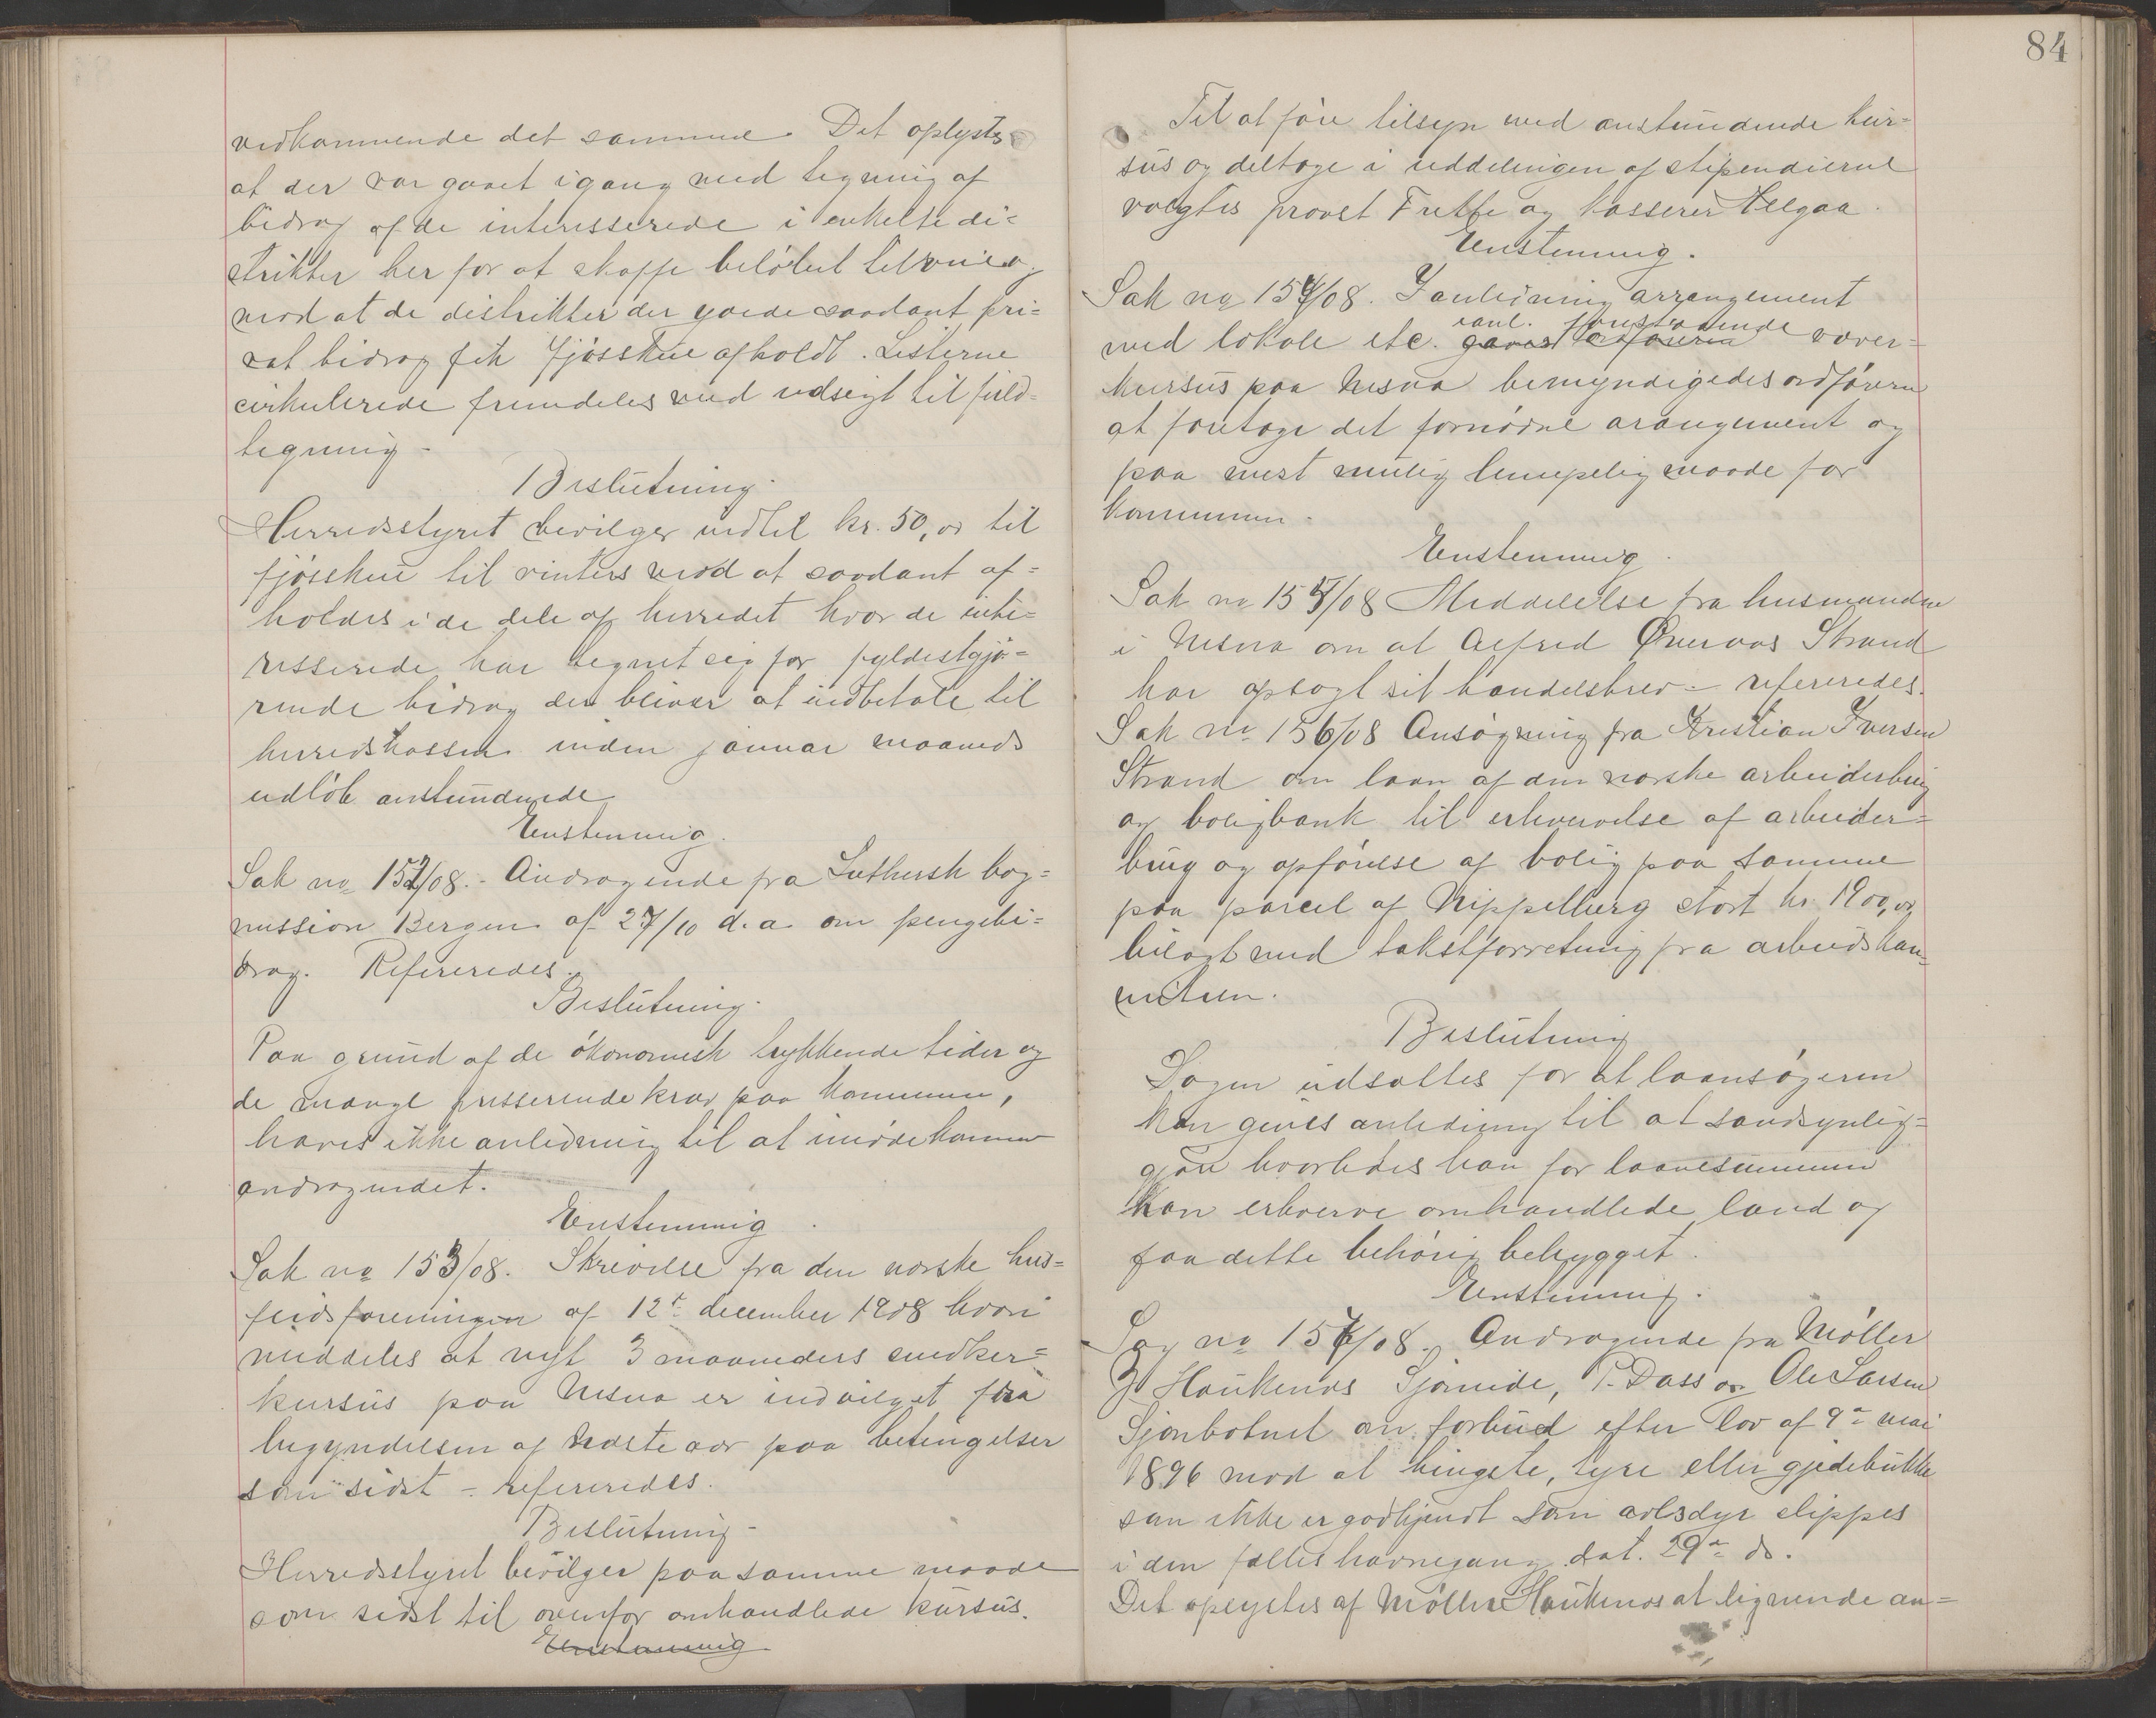 84
vedkommende det samme. Det oplystes
at der var gaaet igang med tegning af
bidrag af de interesserede i enkelte di=
strikter her for at skaffe beløbet tilveie og
mod at de distrikter der gjorde saadant pri=
vat bidrag fik fjøsskue afholdt. Listerne
cirkulerede fremdeles med udsigt til fuld=
tegning -
Beslutning.
Herredsstyret bevilger indtil kr. 50,00 til
fjøsskue til vinters mod at saadant af=
holdes i de dele af herredet hvor de inte=
resserede har tegnet sig for fyldestgjø=
rende bidrag der bliver at indbetale til
herredskassen inden januar maaneds
udløb anstundende
Enstemmig.
Sak no 152/08. - Andragende fra Luthersk bog=
mission Bergen af 27/10 d.a. om pengebi=
drag. Refereredes.
Beslutning.
Paa grund af de økonomisk trykkende tider og
de mange presserende krav paa kommunen,
haves ikke anledning til at imødekomme
andragendet.
Enstemmig.
Sak no 153/08. Skrivelse fra den norske hus=
flidsforeningen af 12te december 1908 hvori
meddeles at nyt 3 maaneders snedker=
kursus paa Nesna er indvilget fra
begyndelsen af næste aar paa betingelser
som sidst - refereredes.
Beslutning -
Herredsstyret bevilger paa samme maade
som sidst til ovenfor omhandlede kursus.
Enstemmig
Til at føre tilsyn med anstundende kur=
sus og deltage i uddelingen af stipendierne
valgtes provst Frette og kasserer Helgaa.
Enstemmig.
Sak no 154/08. I anledning arrangement
anl. forestaaende
med lokale etc. væver=
kursus paa Nesna bemyndigedes ordføreren
at foretage det fornødne arangement og
paa mest mulig lempelig maade for
kommunen.
Enstemmig.
Sak no 155/08 Meddelelse fra lensmanden
i Nesna om at Alfred Øveraas Strand
har opsagt sit handelsbrev - refereredes.
Sak no 156/08 Ansøgning fra Kristian Iversen
Strand om laan af den norske arbeiderbrug
og boligbank til erhvervelse af arbeider=
brug og opførelse af bolig paa samme
paa parcel af Nippelberg stort kr. 1900,00
bilagt med takstforretning fra arbeidskom=
miteen.
Beslutning
Sagen udsattes for at laansøgeren
kan gives anledning til at sandsynlig=
gjøre hvorledes han for laanesummen
kan erhverve omhandlede land og
faa dette behørig bebygget.
Enstemmig.
Sag no 157/08. Andragende fra Møller
J Haukenes Sjonide, P. Dass og Ole Larsen
Sjonbotnet om forbud efter lov af 9de mai
1896 mod at hingste, tyre eller gjedebukke
som ikke er godkjendt som avlsdyr slippes
i den fælles havnegang dat. 29de ds.
Det oplystes af Møller Haukenes at lignende an=